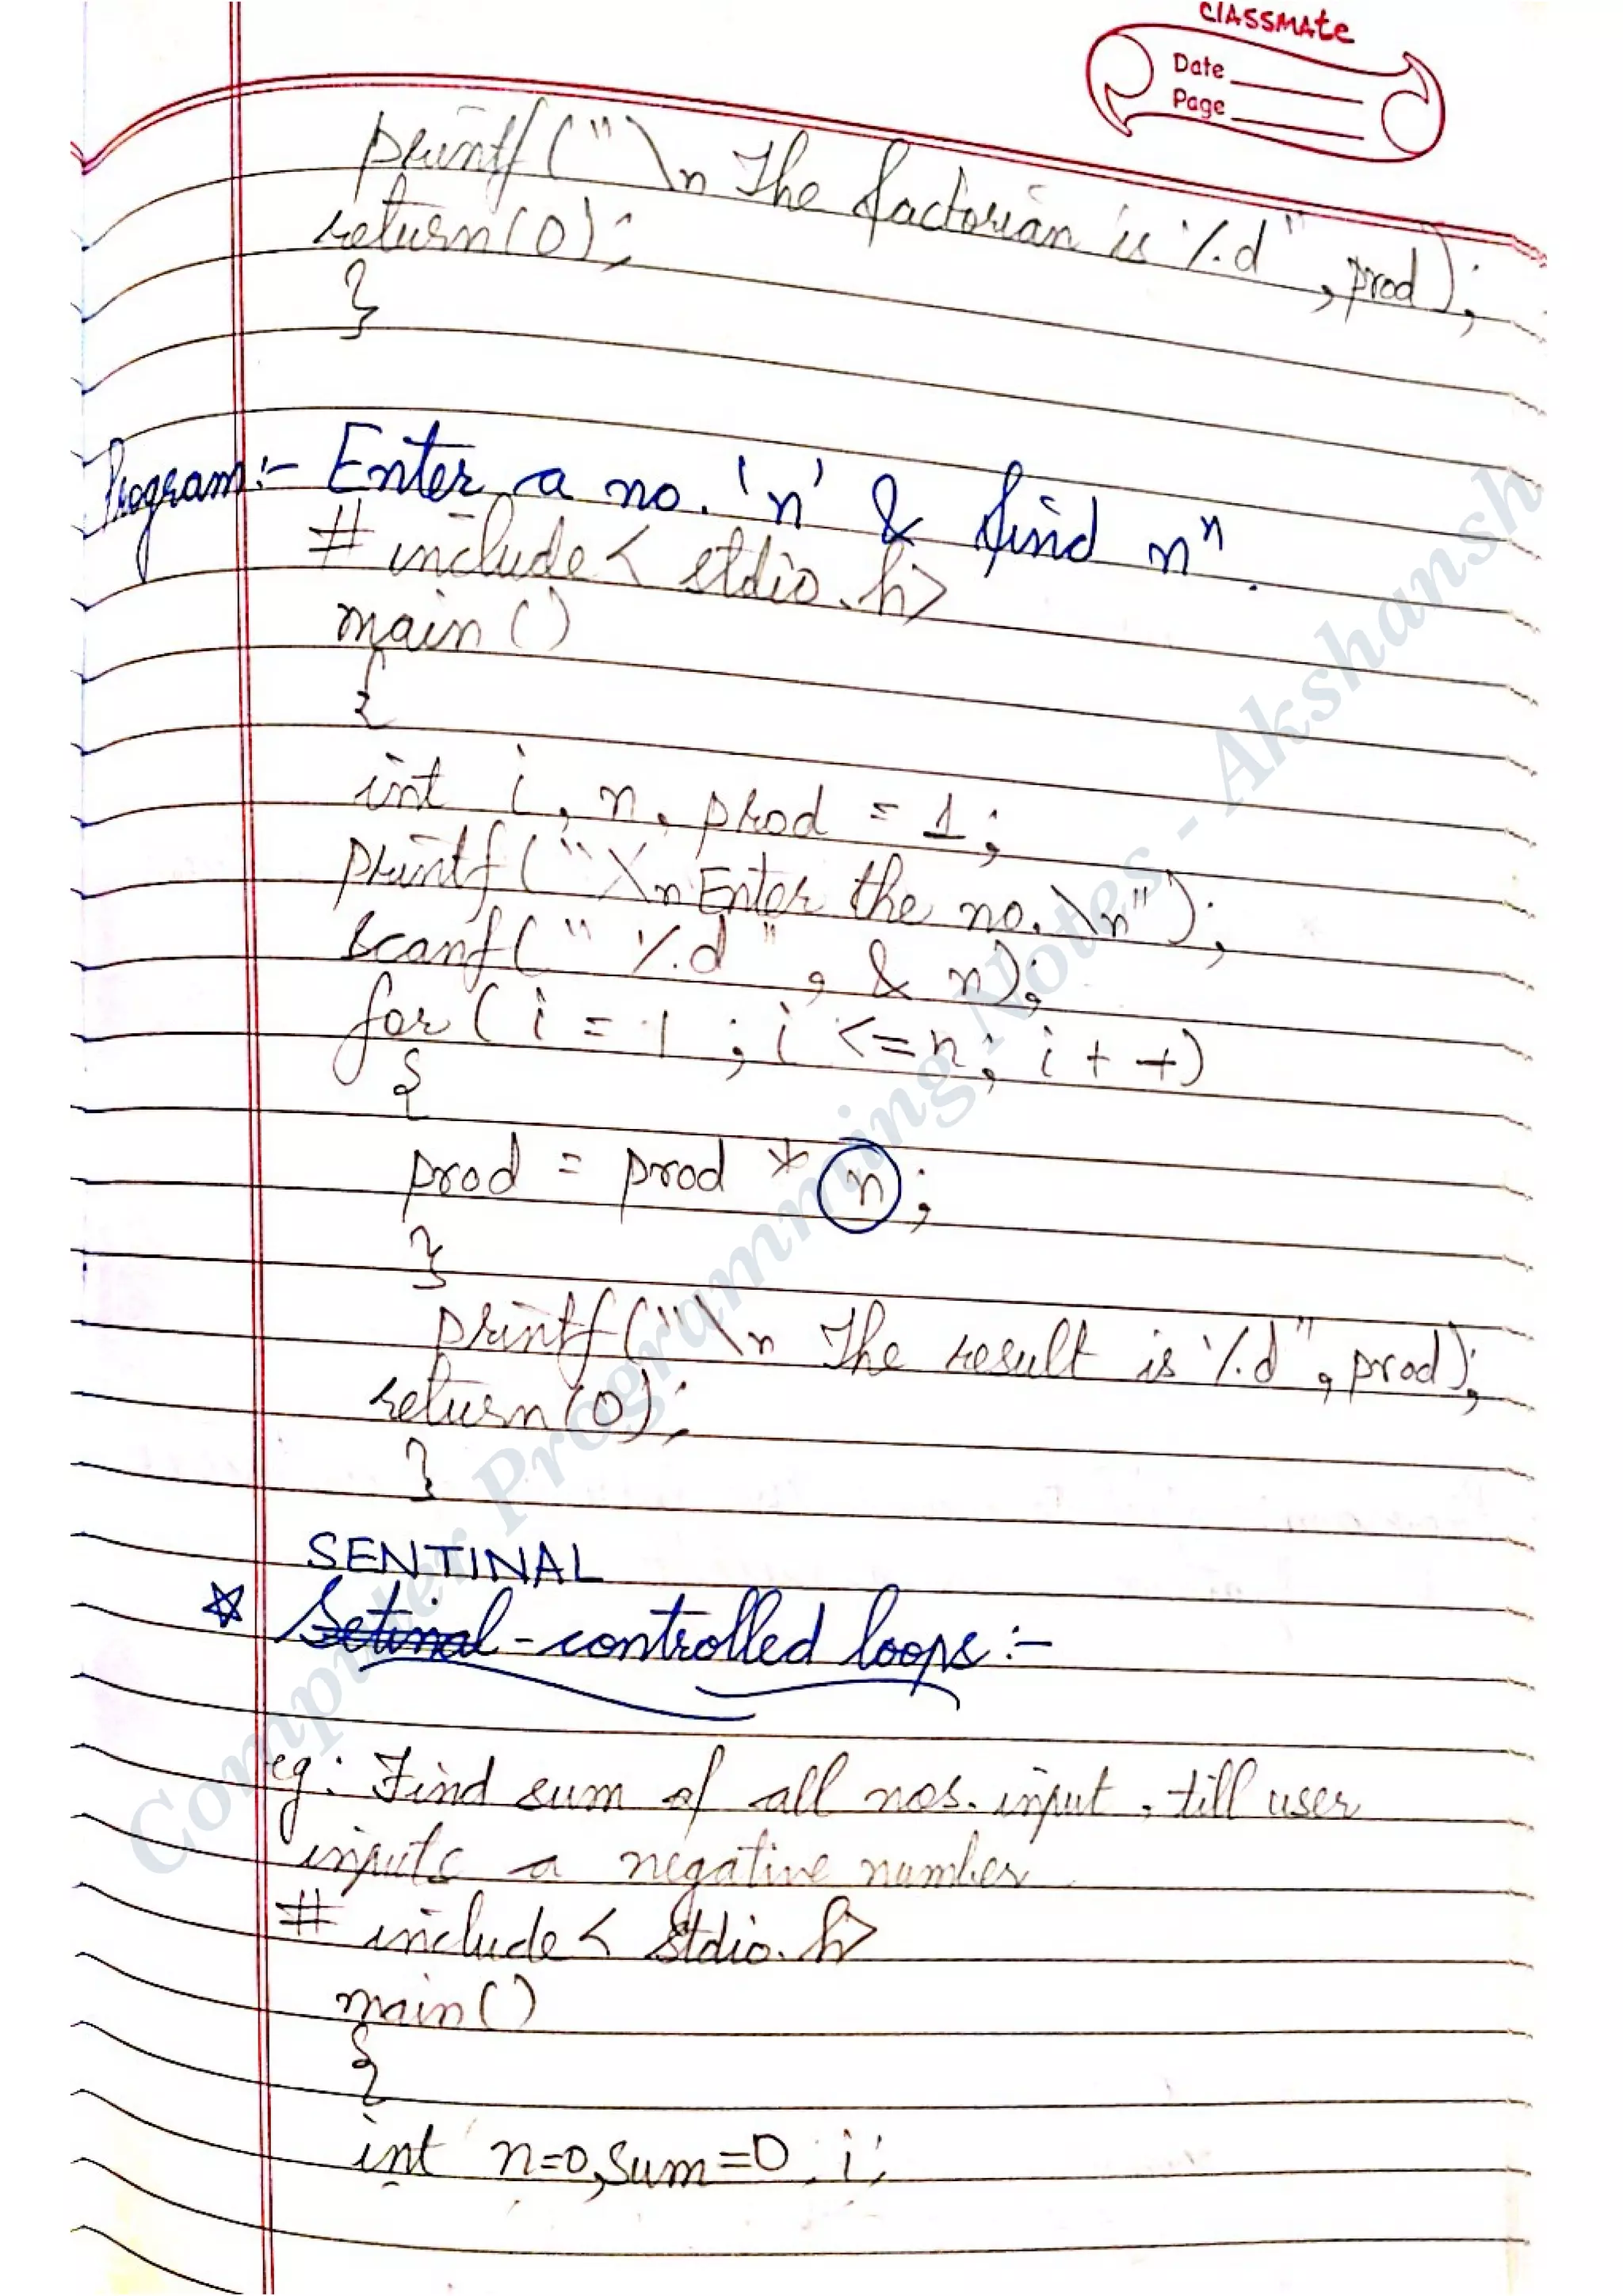 classmate
Date
Page
printf("\n The factorian is %d", prod);
return(0);
}
Program:- Enter a no. 'n' & find nⁿ.
# include< stdio.h>
main()
{
int i, n, prod = 1;
printf("\n Enter the no. \n");
scanf(" %d ", & n);
for( i = 1 ; i <=n; i + +)
{
prod = prod * n;
}
printf("\n The result is %d", prod);
return(0);
}
SENTINAL
☆ Setinal-controlled loops:-
eg: Find sum of all nos. input, till user
inputs a negative number
# include< stdio.h>
main()
{
int n=0, sum=0, i;
Computer Programming Notes - Akshansh